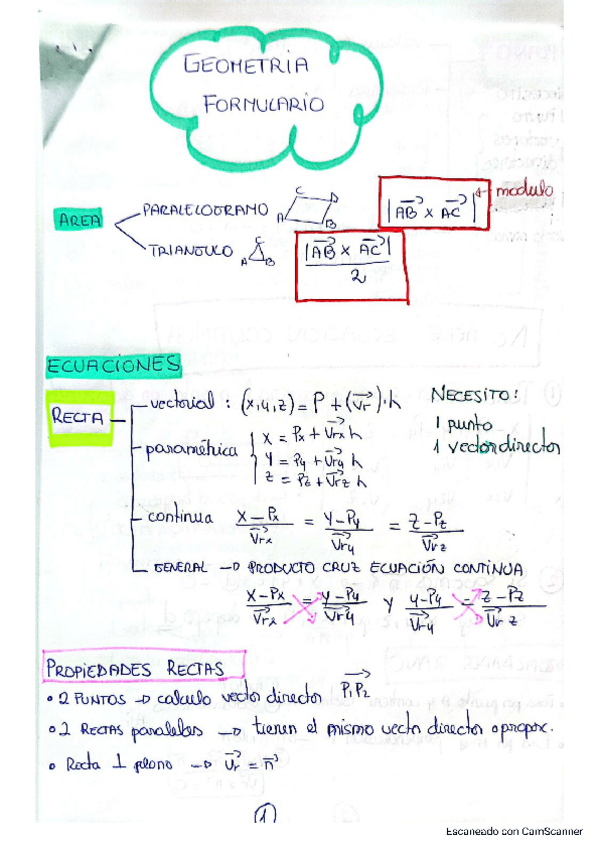 GEOMETRIA
FORMULARIO
AREA
PARALELOGRAMO A B C D |AB→ x AC→| ← modulo
TRIANGULO A B C |AB→ x AC→| / 2
ECUACIONES
RECTA
vectorial : (x,y,z) = P + (Vr→)·λ
NECESITO:
1 punto
1 vector director
paramétrica
x = Px + Vrx→ λ
y = Py + Vry→ λ
z = Pz + Vrz→ λ
continua (x-Px)/Vrx→ = (y-Py)/Vry→ = (z-Pz)/Vrz→
GENERAL → PRODUCTO CRUZ ECUACIÓN CONTINUA
(x-Px)/Vrx→ = (y-Py)/Vry→ y (y-Py)/Vry→ = (z-Pz)/Vrz→
PROPIEDADES RECTAS
• 2 PUNTOS → calculo vector director P1P2→
• 2 RECTAS paralelas → tienen el mismo vector director o propor.
• Recta ⊥ plano → Vr→ = n→
1
Escaneado con CamScanner